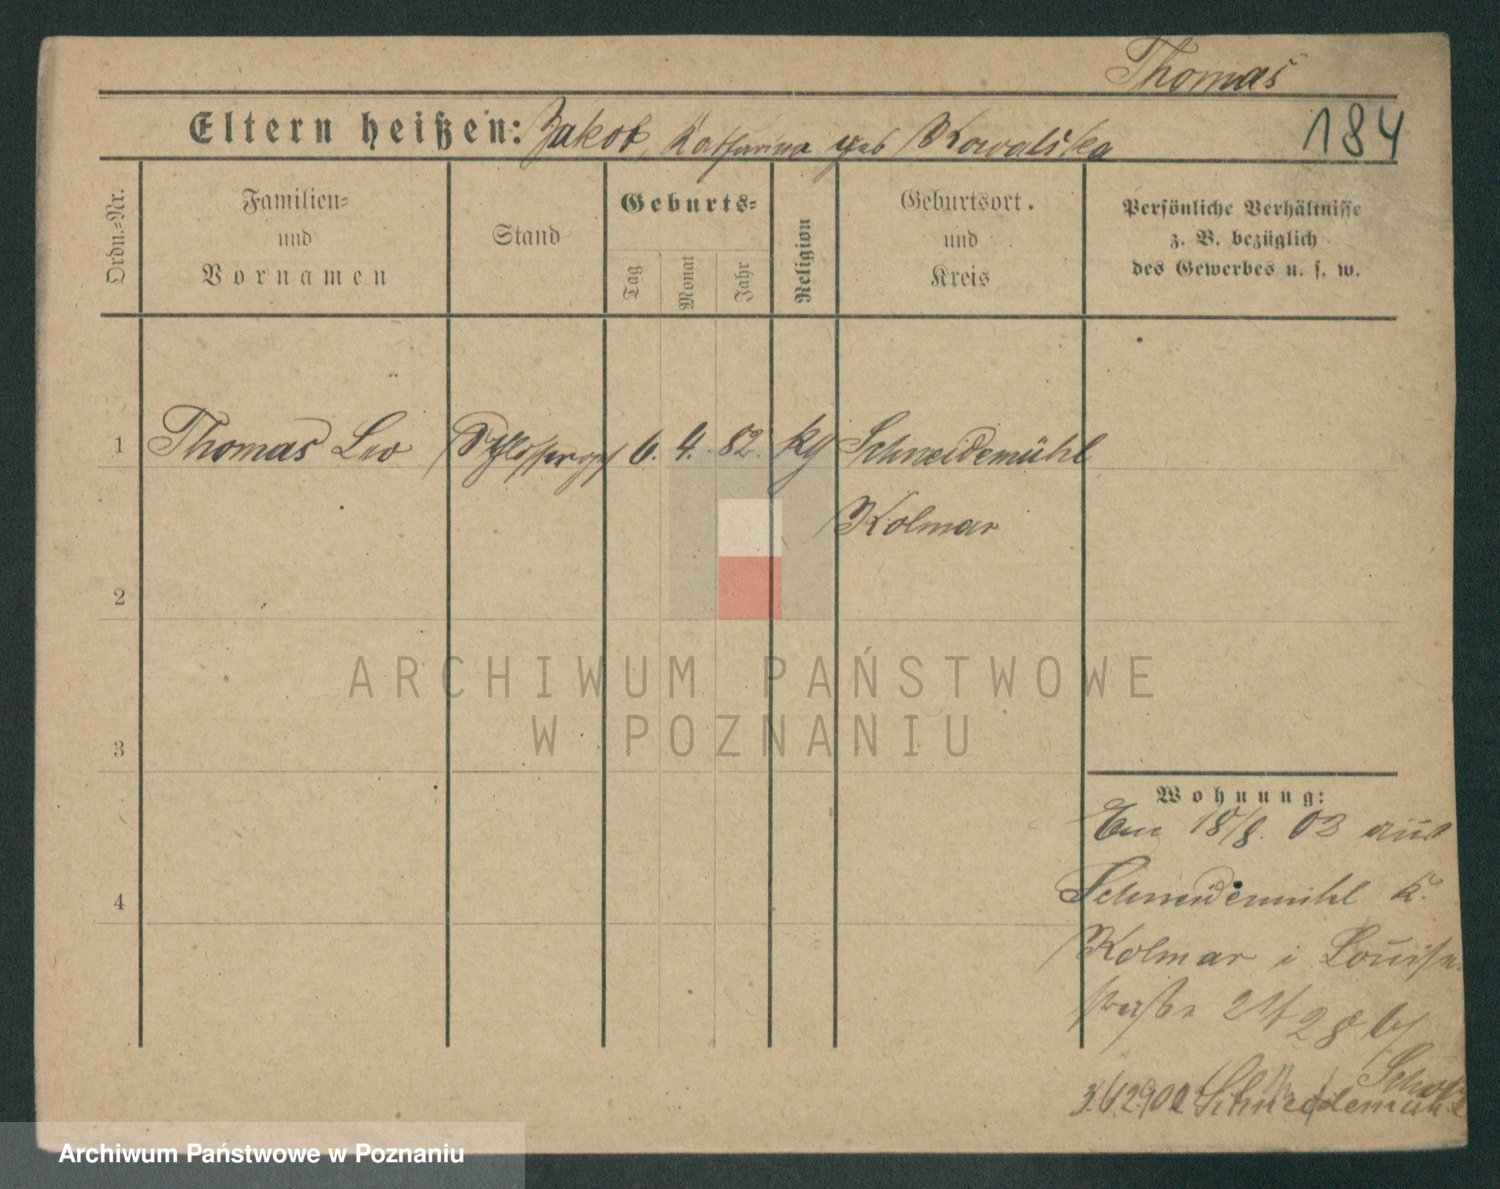 Thomas
Eltern heißen: Jakob, Katharina geb Kowalska
184
Ordn.-Nr.
Familien-
und
Vornamen
Stand
Geburts-
Tag
Monat
Jahr
Religion
Geburtsort.
und
Kreis
Persönliche Verhältnisse
z. B. bezüglich
des Gewerbes u. s. w.
1 Thomas Leo 6. 4. 82. kg Schneidemühl
Kolmar
2
3
4
ARCHIWUM PAŃSTWOWE
W POZNANIU
Wohnung:
18/8. 03 aus
Schneidemühl K.
Kolmar i Louise
straße 21
Schneidemühl
Archiwum Państwowe w Poznaniu